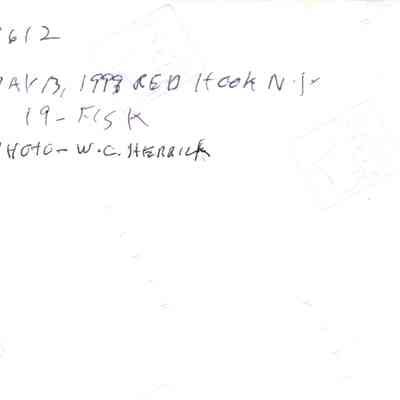 612
MAY 13, 1999 RED HOOK N.J.
19- FISK
PHOTO- W.C. HERRICK